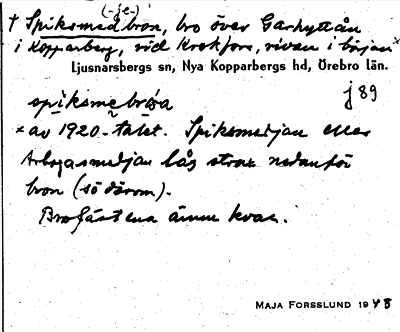 (-je-)
† Spiksmedbron, bro över Garhyttån
i Kopparberg, vid Krokfors, riven i början ×
Ljusnarsbergs sn, Nya Kopparbergs hd, Örebro län.
j 89
spiksmebrόa
× av 1920-talet. Spiksmedjan eller
Arbogasmedjan låg strax nedanför
bron (sö därom).
Brofästena ännu kvar.
MAJA FORSSLUND 1948